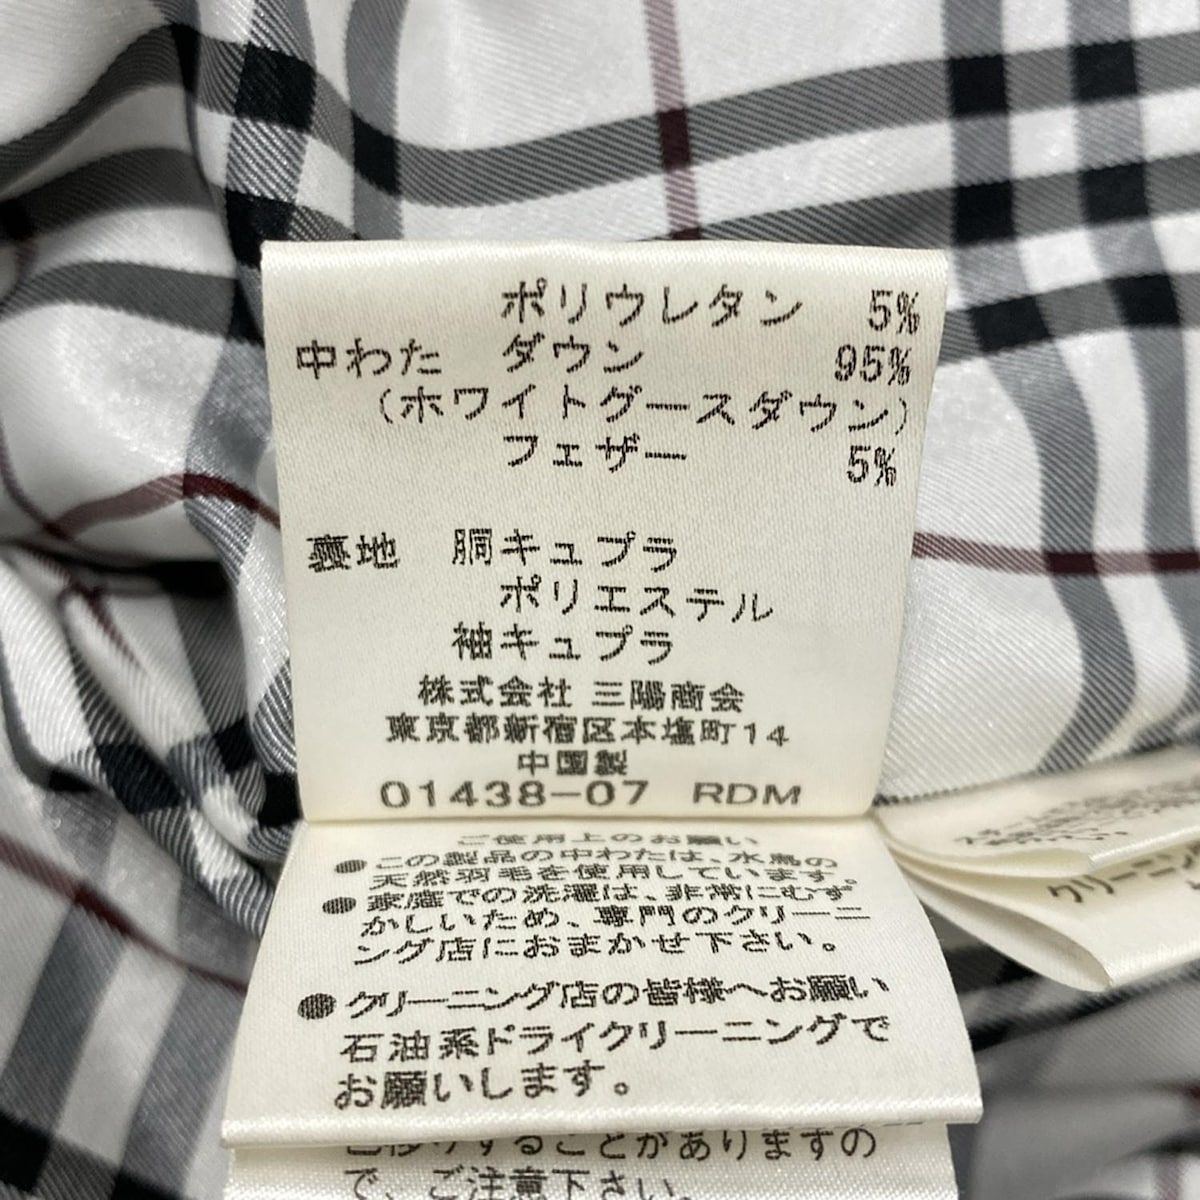 ポリウレタン 5%
中わた ダウン 95%
(ホワイトグースダウン)
フェザー 5%
裏地 胴キュプラ
ポリエステル
袖キュプラ
株式会社 三陽商会
東京都新宿区本塩町14
中国製
01438-07 RDM
ご使用上のお願い
●この製品の中わたは、水鳥の
天然羽毛を使用しています。
●家庭での洗濯は、非常にむず
かしいため、専門のクリーニ
ング店におまかせ下さい。
●クリーニング店の皆様へお願い
石油系ドライクリーニングで
お願いします。
色移りすることがありますの
で、ご注意下さい。
クリーニン